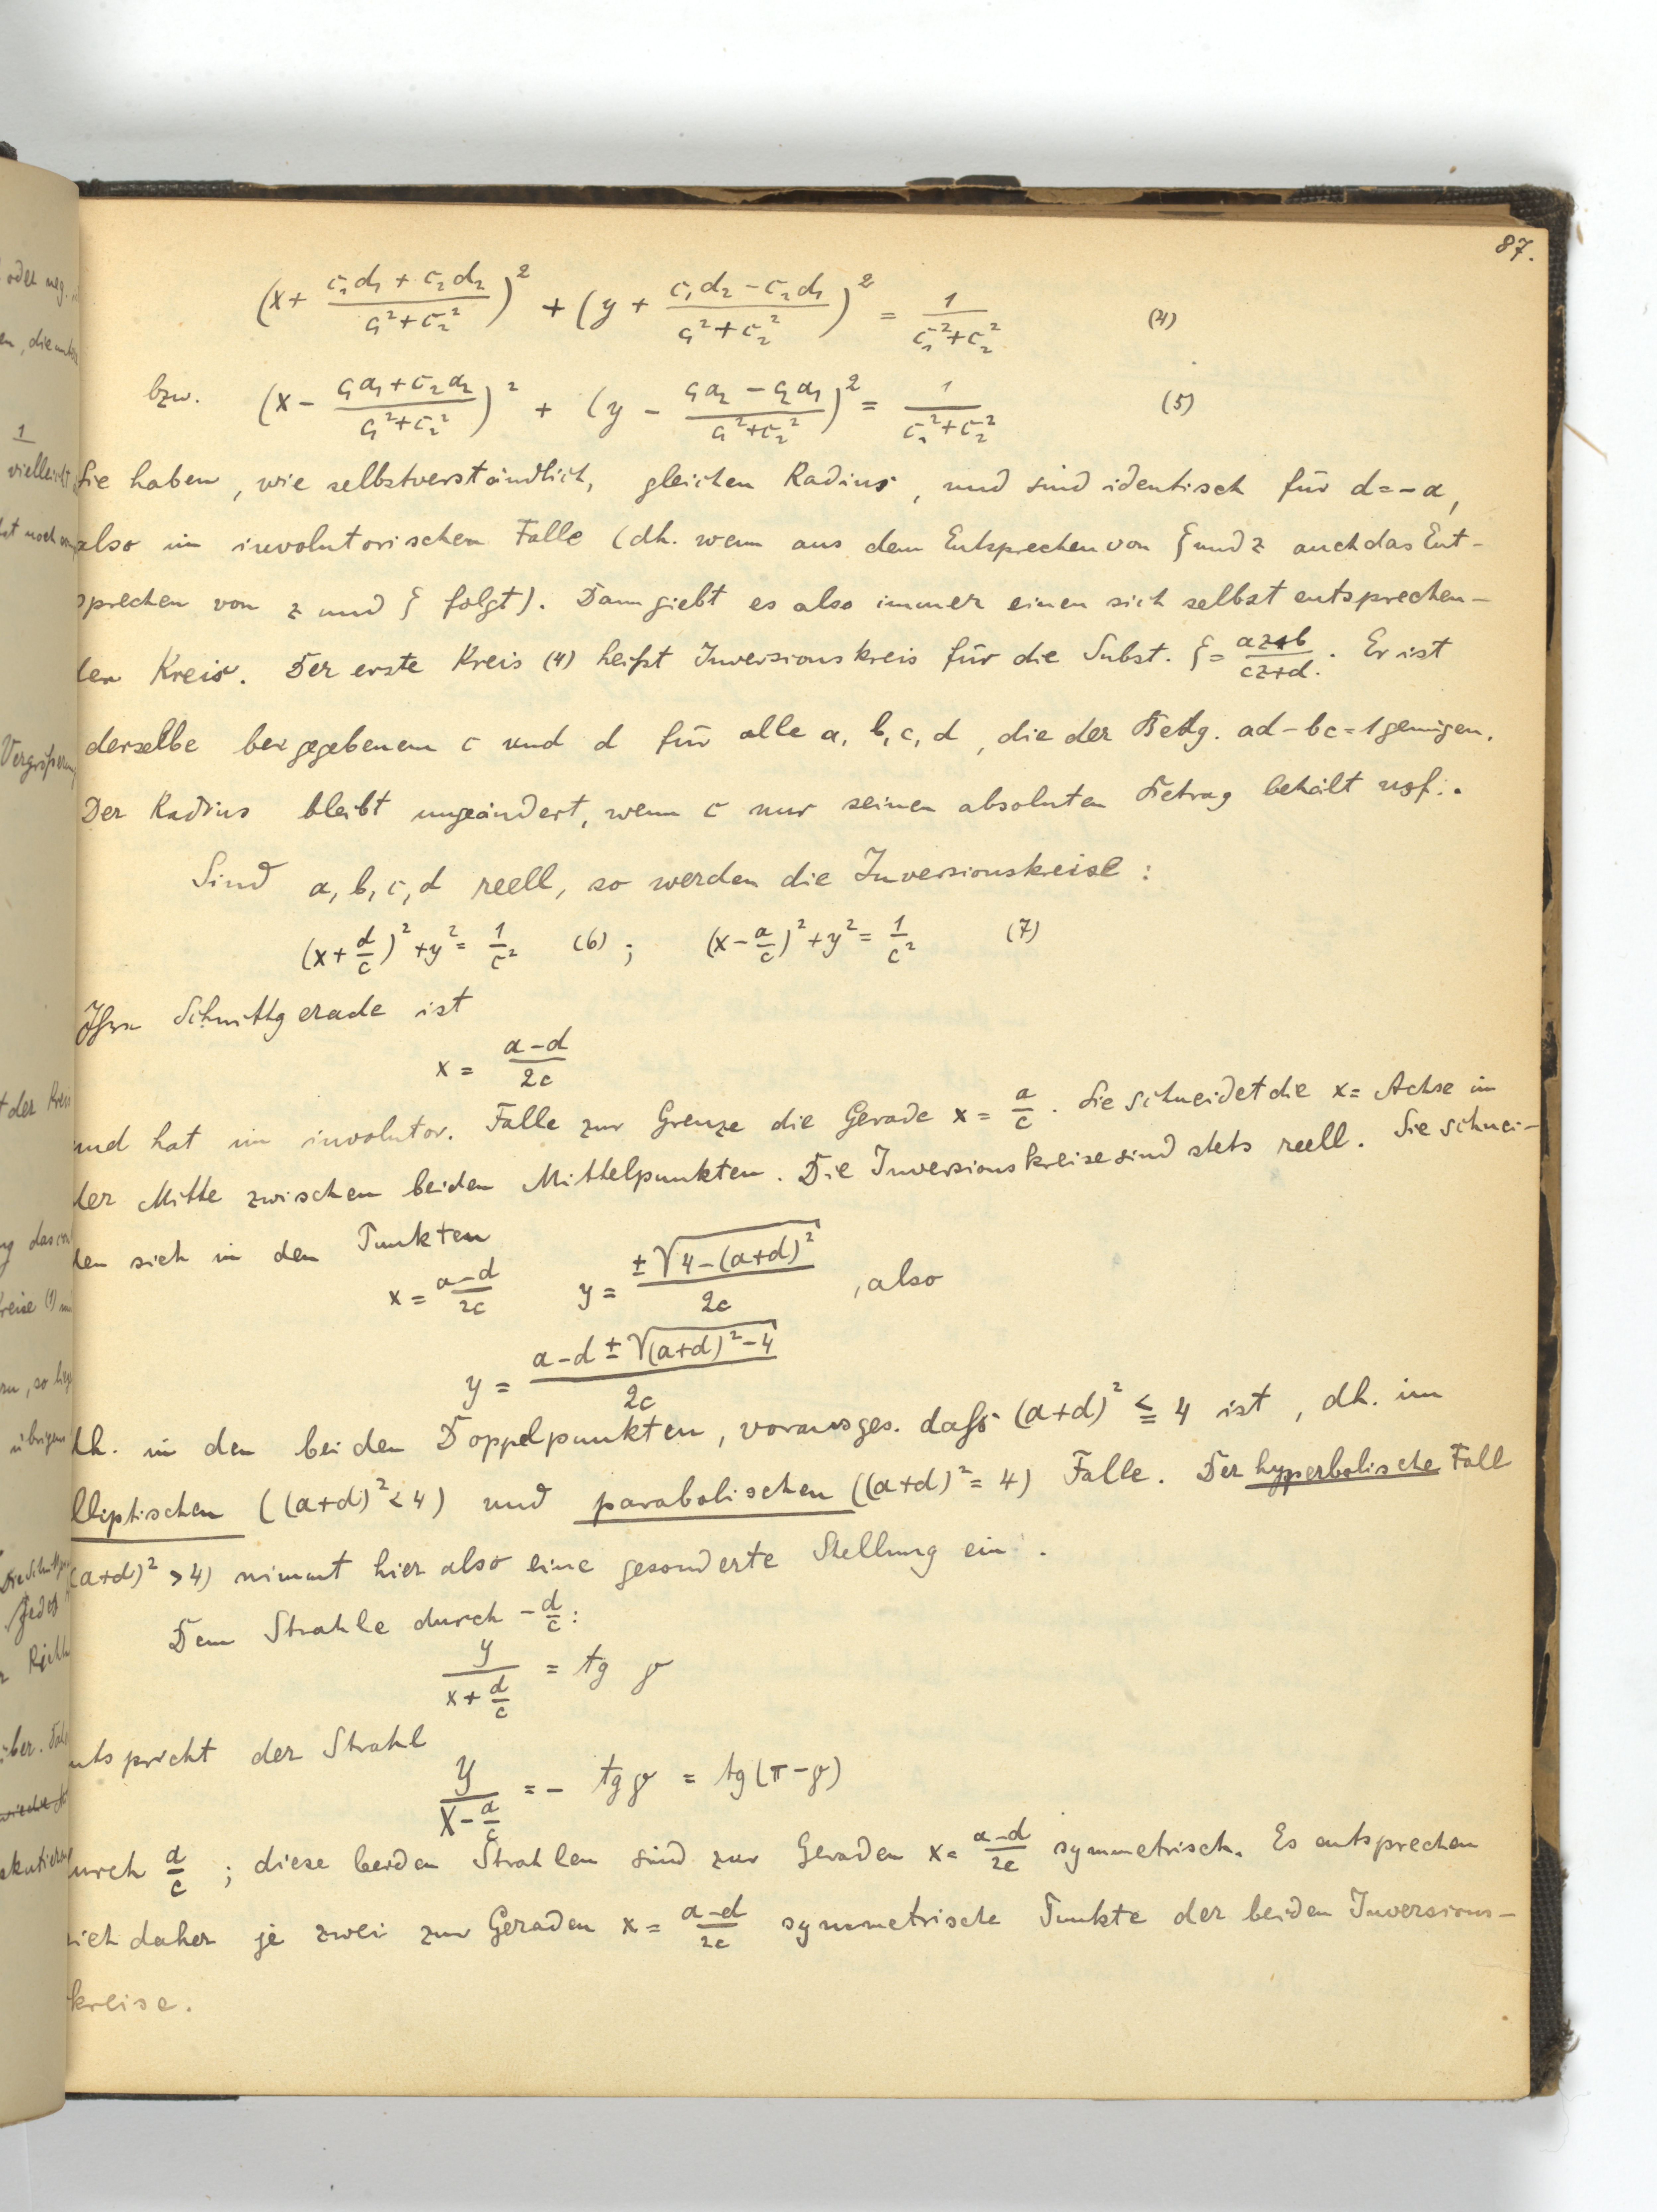 87.
(x + (c₁d₁ + c₂d₂)/(c₁² + c₂²))² + (y + (c₁d₂ − c₂d₁)/(c₁² + c₂²))² = 1/(c₁² + c₂²) (4)
bzw. (x − (c₁a₁ + c₂a₂)/(c₁² + c₂²))² + (y − (c₁a₂ − c₂a₁)/(c₁² + c₂²))² = 1/(c₁² + c₂²) (5)
Sie haben, wie selbstverständlich, gleichen Radius, und sind identisch für d = −a,
also im involutorischen Falle (dh. wenn aus dem Entsprechen von ζ und z auch das Ent-
sprechen von z und ζ folgt). Dann giebt es also immer einen sich selbst entsprechen-
den Kreis. Der erste Kreis (4) heißt Inversionskreis für die Subst. ζ = (az+b)/(cz+d). Er ist
derselbe bei gegebenem c und d für alle a, b, c, d, die der Bedg. ad − bc = 1 genügen.
Der Radius bleibt ungeändert, wenn c nur seinen absoluten Betrag behält usf.
Sind a, b, c, d reell, so werden die Inversionskreise:
(x + d/c)² + y² = 1/c² (6); (x − a/c)² + y² = 1/c² (7)
Ihre Schnittgerade ist
x = (a−d)/2c
und hat im involutor. Falle zur Grenze die Gerade x = a/c. Sie schneidet die x = Achse in
der Mitte zwischen beiden Mittelpunkten. Die Inversionskreise sind stets reell. Sie schnei-
den sich in den Punkten
x = (a−d)/2c y = ±√(4−(a+d)²)/2c, also
y = (a−d ± √((a+d)²−4))/2c
dh. in den beiden Doppelpunkten, vorausges. daß (a+d)² ≦ 4 ist, dh. im
elliptischen ((a+d)² < 4) und parabolischen ((a+d)² = 4) Falle. Der hyperbolische Fall
((a+d)² > 4) nimmt hier also eine gesonderte Stellung ein.
Dem Strahle durch −d/c:
y/(x + d/c) = tg φ
entspricht der Strahl
Y/(X − a/c) = − tg φ = tg(π−φ)
durch a/c; diese beiden Strahlen sind zur Geraden x = (a−d)/2c symmetrisch. Es entsprechen
sich daher je zwei zur Geraden x = (a−d)/2c symmetrische Punkte der beiden Inversions-
kreise.